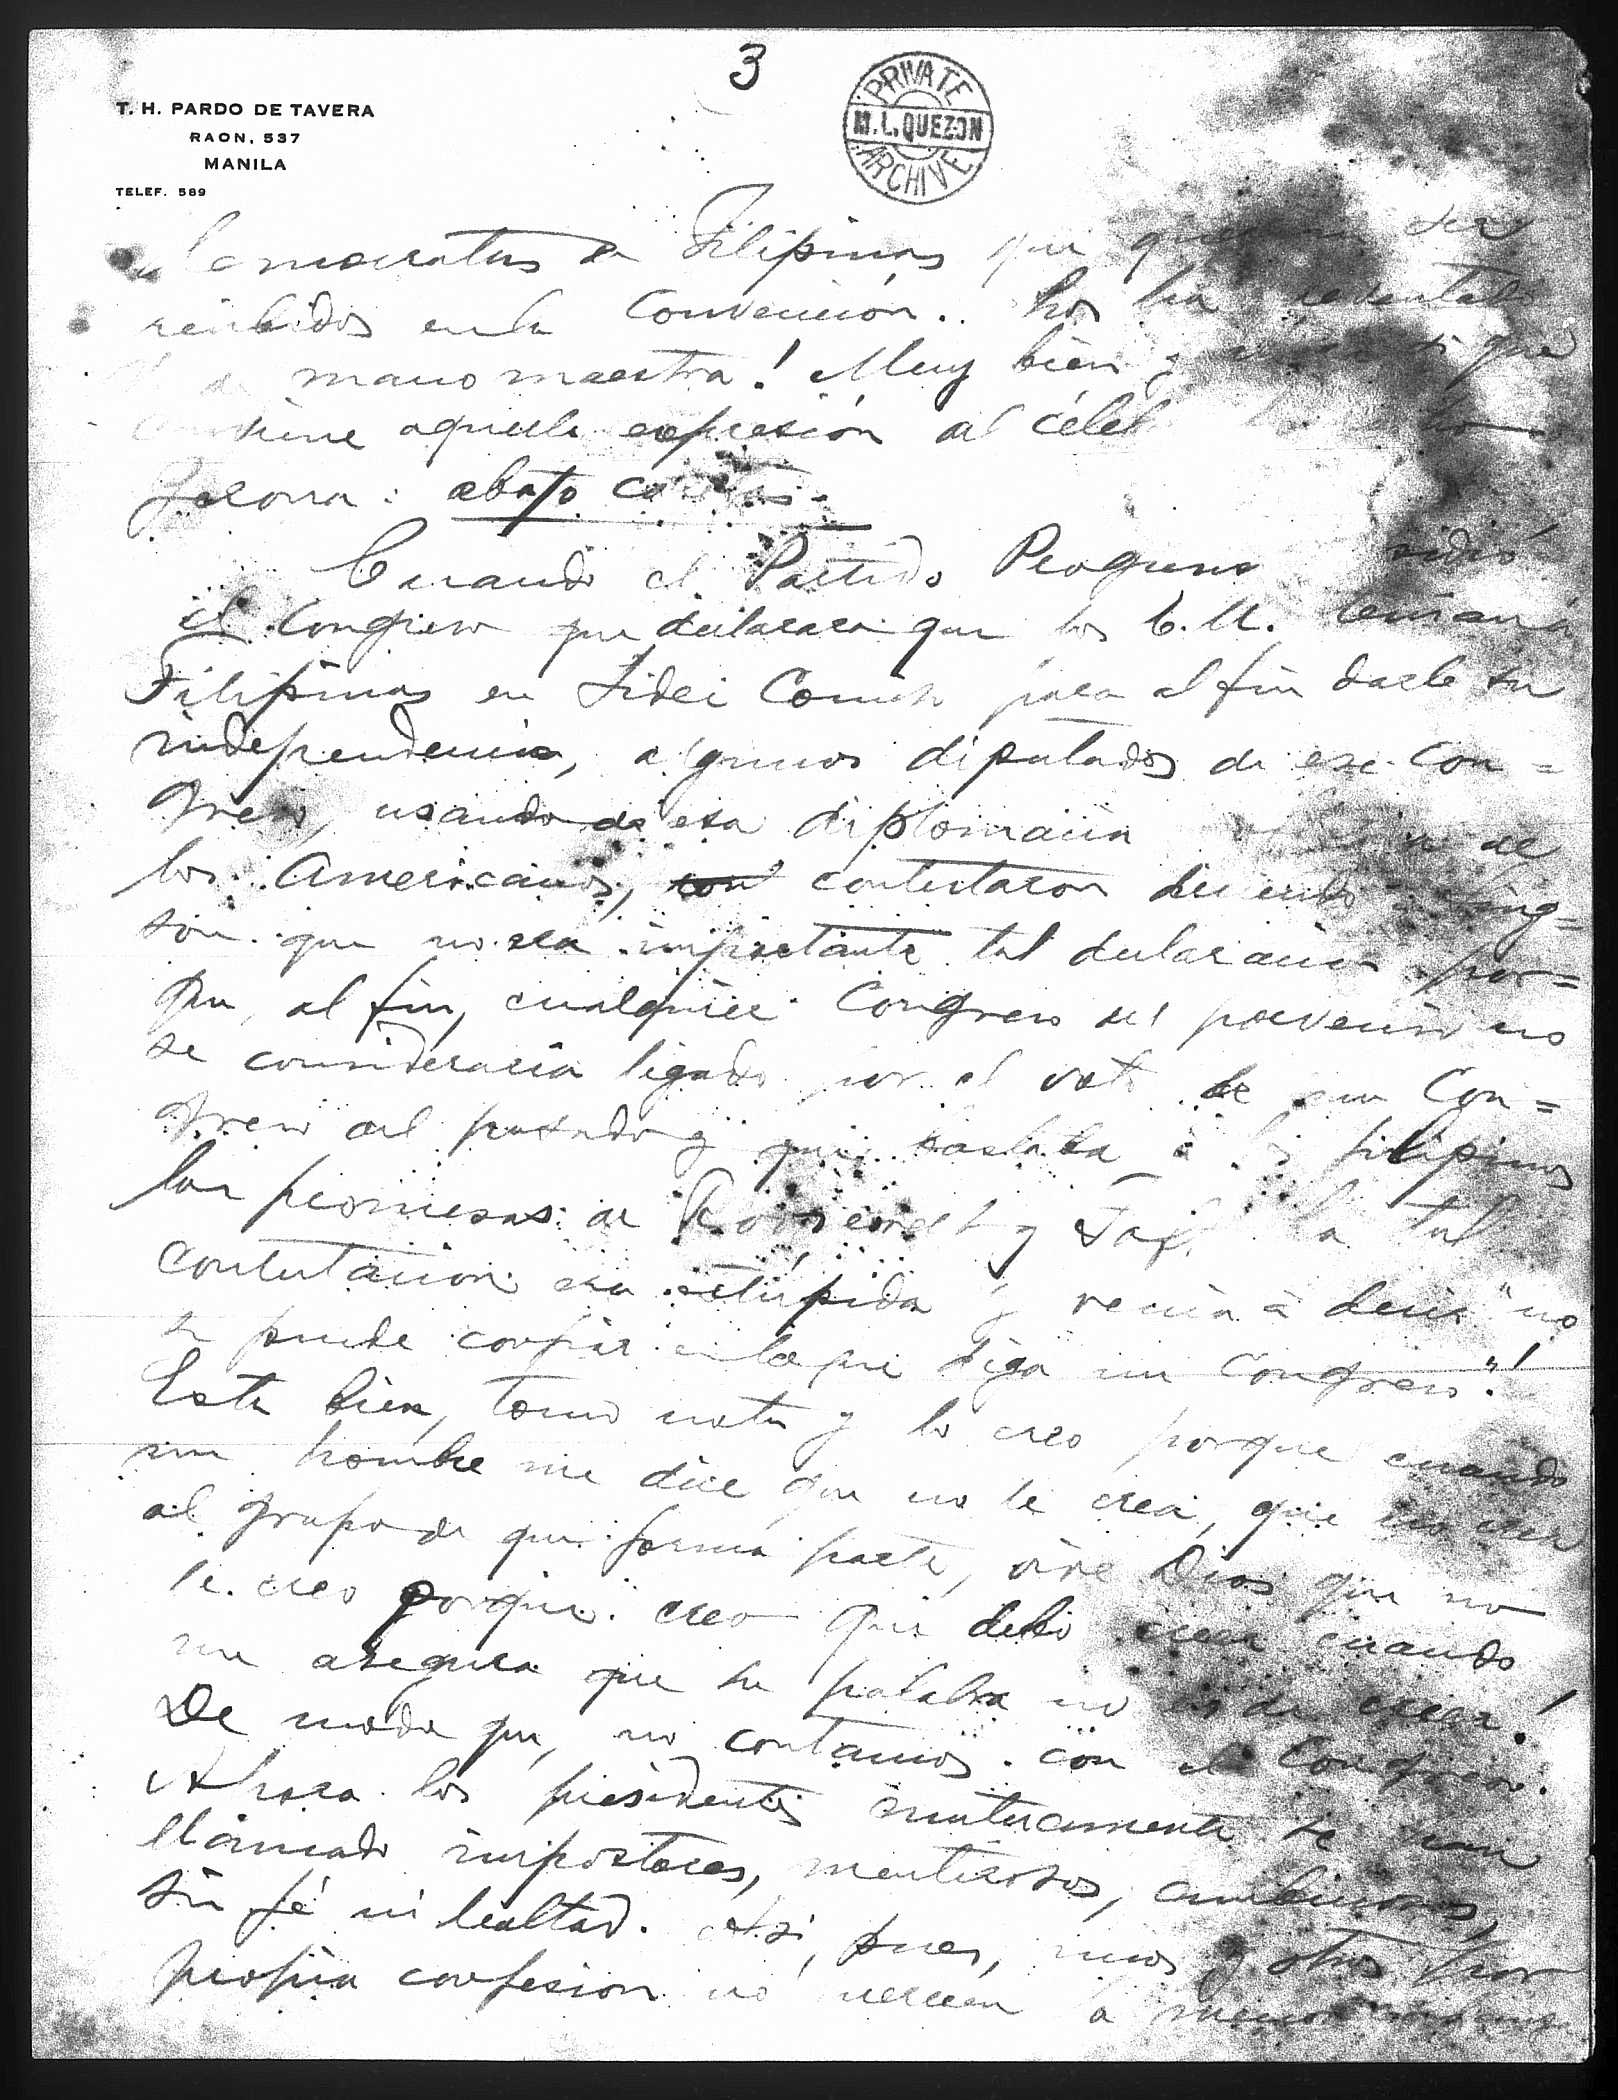 3
PRIVATE
M. L. QUEZON
ARCHIVE
T. H. PARDO DE TAVERA
RAON, 537
MANILA
TELEF. 589
democratas de Filipinas que ser
recibidos en la Convención.. los ha reventado
de mano maestra! Muy bien y que
aquella expresión del
: abajo
Cuando el Partido pidió
el Congreso que declarara que los E. U. tenían á
Filipinas en Fidei Comiso para al fin darle su
independencia, algunos diputados de ese Con=
greso, usando de esa diplomacia de
los Americanos, contestaron diciendo
que no era importante tal declaracion por=
que, al fin, cualquier Congreso del porvenir no
se consideraria ligado por el voto de un Con=
greso del pasado y que bastaba á los filipinos
las promesas de Roosevelt y Taft. La tal
contestacion era estúpida y venia á decir "no
se puede confiar en lo que diga un Congreso"!
Esta bien, tomo nota y lo creo porque cuando
un hombre me dice que no le crea, que no crea
al grupo de que forma parte, vive Dios que no
le creo porque creo que debo creer cuando
me asegura que su palabra no es de creer!
De modo que, no contamos con el Congreso.
Ahora los presidentes mutuamente se han
llamado impostores, mentirosos, ambiciosos,
sin fé ni lealtad. Asi, pues, unos y otros por
propia confesion no merecen la menor